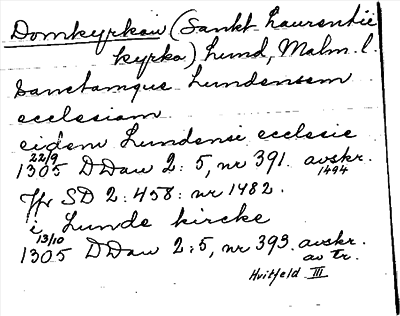 Domkyrkan (Sankt Laurentii
kyrka) Lund, Malm. l.
Sanctamque Lundensem
ecclesiam
eidem Lundensi ecclesie
22/9
1305 DDan 2:5, nr 391. avskr.
1494
Jfr SD 2:458: nr 1482.
i Lunde kircke
13/10
1305 DDan 2:5, nr 393. avskr.
av tr.
Hvitfeld III